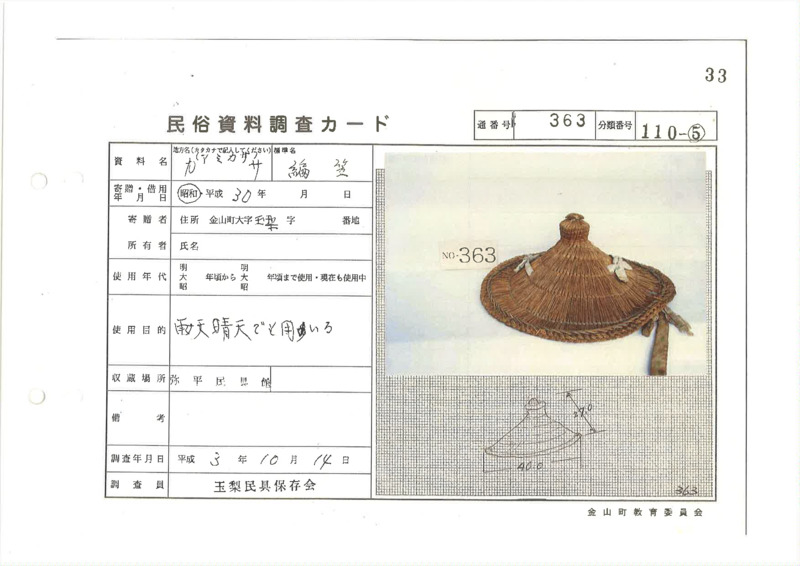 33
民俗資料調査カード
通番号 363 分類番号 110-⑤
資料名 地方名(カタカナで記入してください) 標準名 編笠
寄贈・借用年月日 昭和・平成 30年 月 日
寄贈者 住所 金山町大字玉梨字 番地
所有者 氏名
使用年代 明大昭 年頃から 明大昭 年頃まで使用・現在も使用中
使用目的 雨天晴天でも用いる
収蔵場所 弥平民具館
備考
調査年月日 平成 3年 10月 14日
調査員 玉梨民具保存会
NO-363
27.0
40.0
363
金山町教育委員会